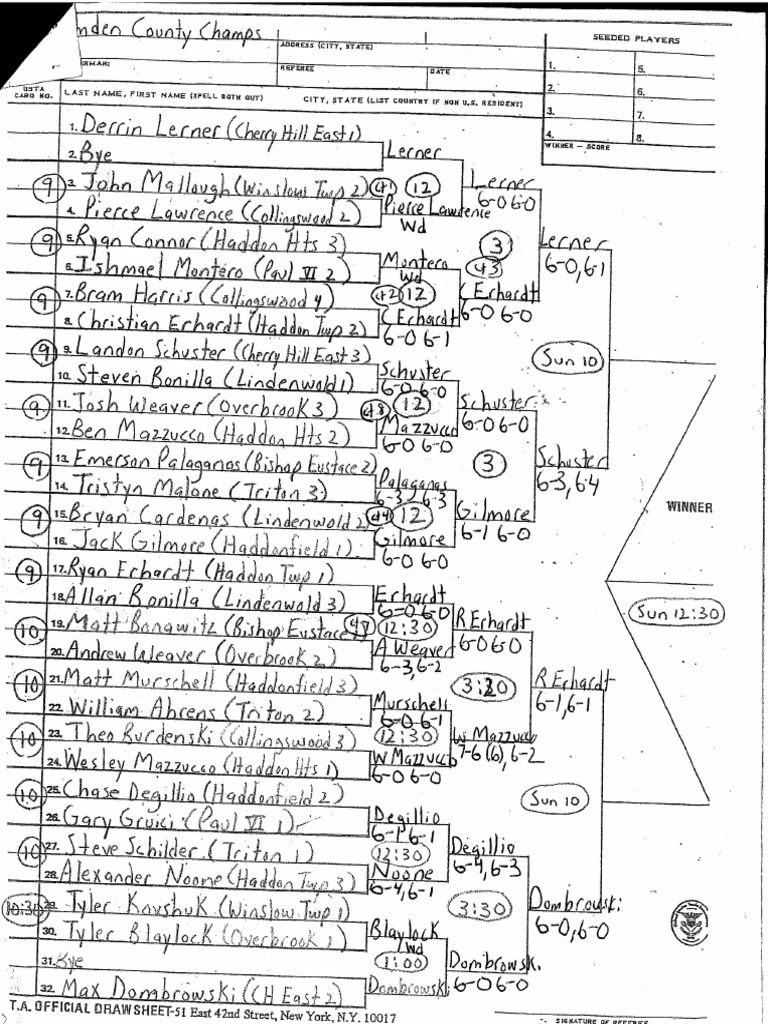 mden County Champs
SEEDED PLAYERS
ADDRESS (CITY, STATE)
RMAN:
REFEREE
DATE
1. 5.
2. 6.
3. 7.
4. 8.
USTA CARD NO.
LAST NAME, FIRST NAME (SPELL BOTH OUT)
CITY, STATE (LIST COUNTRY IF NON U.S. RESIDENT)
WINNER — SCORE
1. Derrin Lerner (Cherry Hill East 1)
2. Bye
Lerner
9 3. John Mallough (Winslow Twp 2)
ct 1 12
Lerner
6-0 6-0
4. Pierce Lawrence (Collingswood 2)
Pierce Lawrence
Wd
9 5. Ryan Connor (Haddon Hts 3)
3
Lerner
6-0, 6-1
6. Ishmael Montero (Paul VI 2)
Montero
Wd
ct 3
9 7. Bram Harris (Collingswood 4)
ct 2 12
C Erhardt
6-0 6-0
8. Christian Erhardt (Haddon Twp 2)
C Erhardt
6-0 6-1
9 9. Landon Schuster (Cherry Hill East 3)
Sun 10
10. Steven Bonilla (Lindenwold 1)
Schuster
6-0 6-0
9 11. Josh Weaver (Overbrook 3)
ct 8 12
Schuster
6-0 6-0
12. Ben Mazzucco (Haddon Hts 2)
Mazzucco
6-0 6-0
9 13. Emerson Palaganas (Bishop Eustace 2)
3
Schuster
6-3, 6-4
14. Tristyn Malone (Triton 3)
Palaganas
6-3, 6-3
9 15. Bryan Cardenas (Lindenwold 2)
ct 4 12
Gilmore
6-1 6-0
WINNER
16. Jack Gilmore (Haddonfield 1)
Gilmore
6-0 6-0
9 17. Ryan Erhardt (Haddon Twp 1)
18. Allan Bonilla (Lindenwold 3)
Erhardt
6-0 6-0
Sun 12:30
10 19. Matt Bonawitz (Bishop Eustace
12:30
R Erhardt
6-0 6-0
20. Andrew Weaver (Overbrook 2)
A Weaver
6-3, 6-2
10 21. Matt Murschell (Haddonfield 3)
3:30
R Erhardt
6-1, 6-1
22. William Ahrens (Triton 2)
Murschell
6-0 6-1
10 23. Theo Burdenski (Collingswood 3)
12:30
W Mazzucco
7-6 (6), 6-2
24. Wesley Mazzucco (Haddon Hts 1)
W Mazzucco
6-0 6-0
10 25. Chase Degillio (Haddonfield 2)
Sun 10
26. Gary Gruici (Paul VI 1)
Degillio
6-1 6-1
10 27. Steve Schilder (Triton 1)
12:30
Degillio
6-4, 6-3
28. Alexander Noone (Haddon Twp 3)
Noone
6-4, 6-1
10:30 29. Tyler Kovshuk (Winslow Twp 1)
3:30
Dombrowski
6-0, 6-0
30. Tyler Blaylock (Overbrook 1)
Blaylock
Wd
31. Bye
1:00
Dombrowski
6-0 6-0
32. Max Dombrowski (CH East 2)
Dombrowski
T.A. OFFICIAL DRAW SHEET-51 East 42nd Street, New York, N.Y. 10017
SIGNATURE OF REFEREE